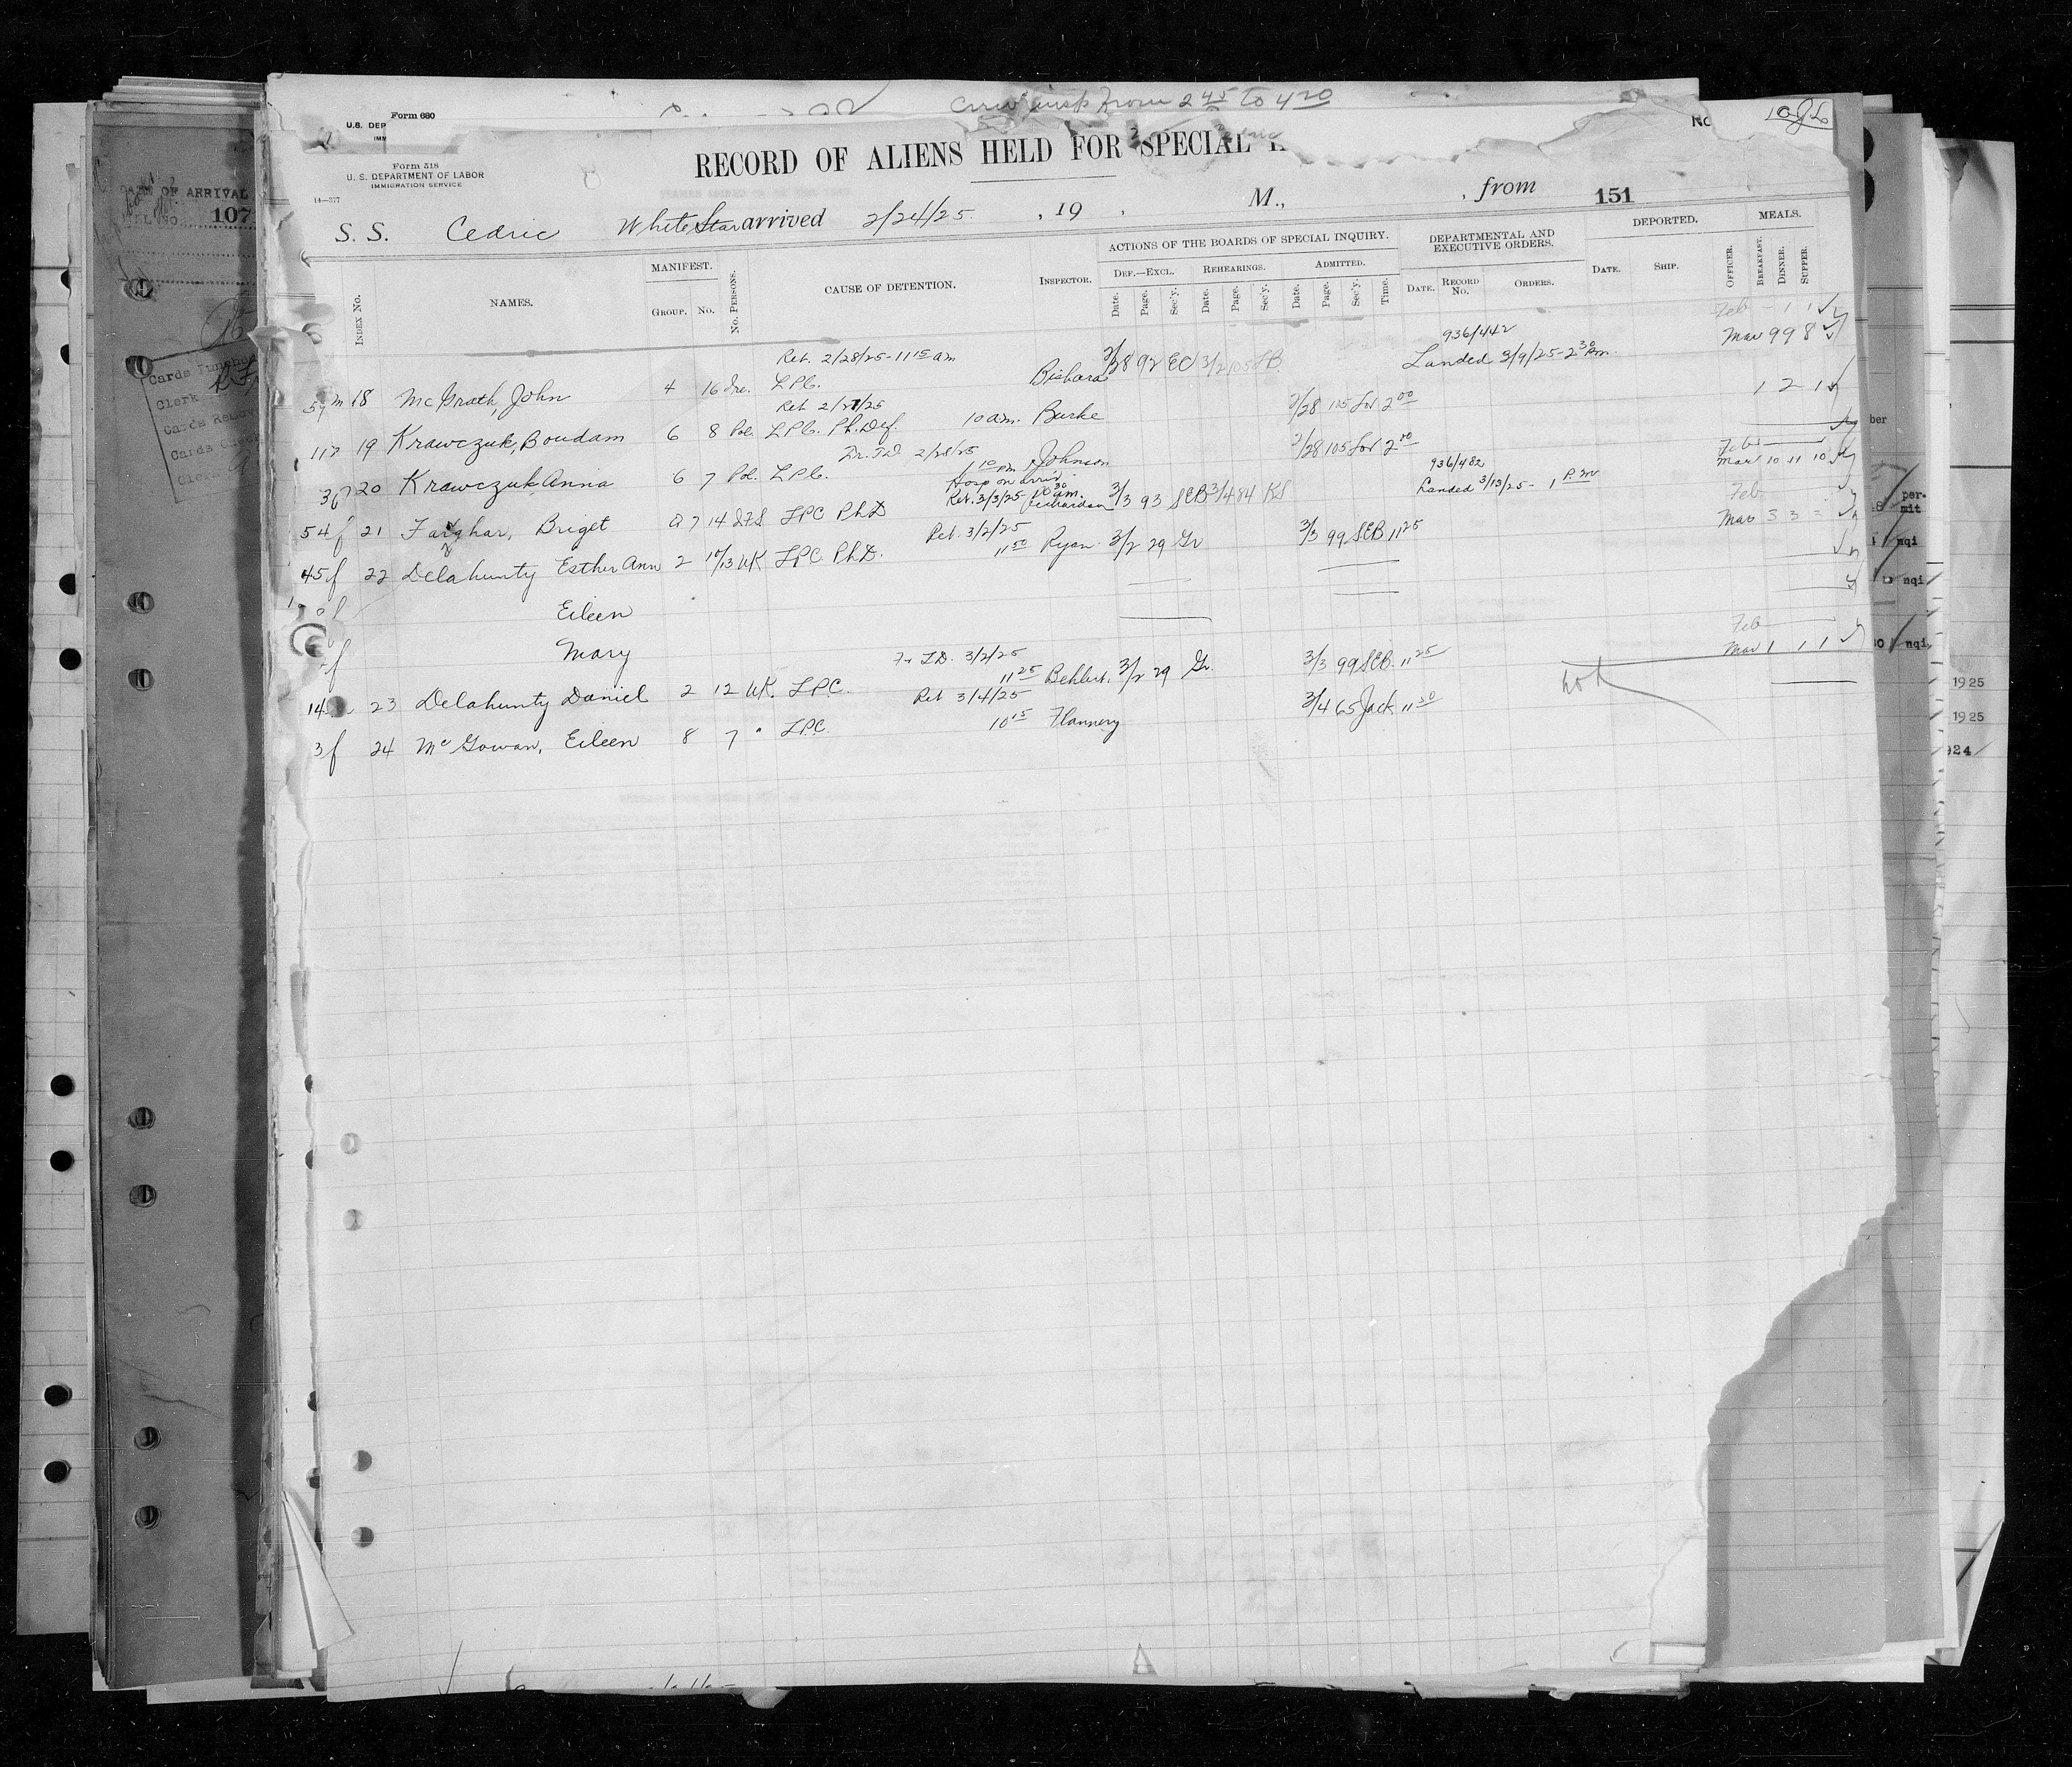 Curw insp from 2 45 to 4 20
Form 680
U.S. DEP
IMM
No
Form 518
U. S. DEPARTMENT OF LABOR
IMMIGRATION SERVICE
14—577
RECORD OF ALIENS HELD FOR SPECIAL
S. S. Cedric White Star arrived 2/24/25 , 19 , M., , from 151
INDEX No. NAMES. MANIFEST. GROUP. No. No. PERSONS. CAUSE OF DETENTION. INSPECTOR. ACTIONS OF THE BOARDS OF SPECIAL INQUIRY. DEPARTMENTAL AND EXECUTIVE ORDERS. DEPORTED. MEALS.
DEF.—EXCL. REHEARINGS. ADMITTED.
Date. Page. Sec'y. Date. Page. Sec'y. Date. Page. Sec'y. Time. DATE. RECORD No. ORDERS. DATE. SHIP. OFFICER. BREAKFAST. DINNER. SUPPER.
Feb - 1 1
Ret. 2/28/25 - 11 15 am 936/442 Mar 9 9 8
m 18 McGrath, John 4 16 Ire. LPC. Bishara 2/28 92 EC 3/2 105 Landed 3/9/25 - 2 30 Pm.
Ret 2/27/25 1 2 1
19 Krawczuk, Boudam 6 8 Pol. LPC. Ph. Def. 10 am. Burke 2/28 105 Lor 2 00
2/28/25 1 10 pm
20 Krawczuk, Anna 6 7 Pol. LPC. Johnson 2/28 105 Lor 2 00
Hosp on arriv 936/482 Feb
Ret. 3/3/25 10 30 am. Mar 10 11 10
54 f 21 Farghar, Briget 7 14 IFS LPC PhD Richardson 3/3 93 SEB 3/4 84 KS Landed 3/13/25 - 1 P.m
Feb
Ret. 3/2/25 Mar 3 3 =
45 f 22 Delahunty Esther Ann 2 10/13 UK LPC PhD. 11 50 Ryan 3/2 29 Gr 3/3 99 SEB 11 25
f Eileen
f Mary
Feb
LD. 3/2/25 Mar 1 1 1
14 23 Delahunty Daniel 2 12 UK. LPC. 11 25 Behlert. 3/2 29 Gr. 3/3 99 SEB. 11 25
Ret 3/4/25
3 f 24 McGowan, Eileen 8 7 " LPC. 10 15 Flannery 3/4 65 Jack 11 30
OF ARRIVAL
107
Cards Punched
Clerk
Cards
Cards
ber
per-
mit
nqi
nqi
nqi
1925
1925
924